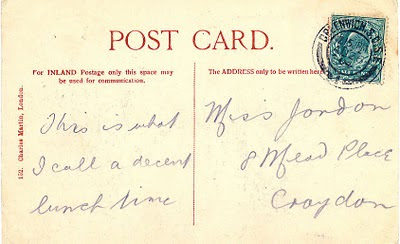 POST CARD.
For INLAND Postage only this space may
be used for communication.
The ADDRESS only to be written here
This is what
I call a decent
lunch time
Miss Jordon
8 Mead Place
Croydon
152. Charles Martin, London.
GREENWICH